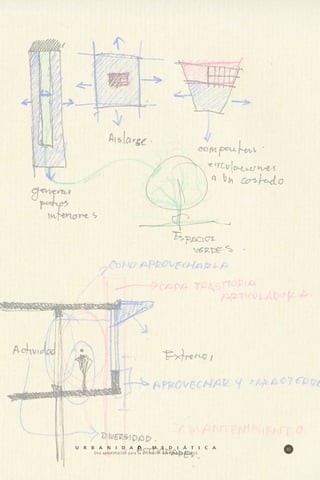 Aislarse
compactar
circulaciones
a un costado
generar
patios
interiores
ESPACIOS
VERDES.
COMO APROVECHARLA
CADA TRANSITORIA
ARTICULADORA
Actividad
Extremo,
APROVECHAR Y
MANTENIMIENTO
DIVERSIDAD.
URBANIDAD MEDIÁTICA
Una aproximación para la